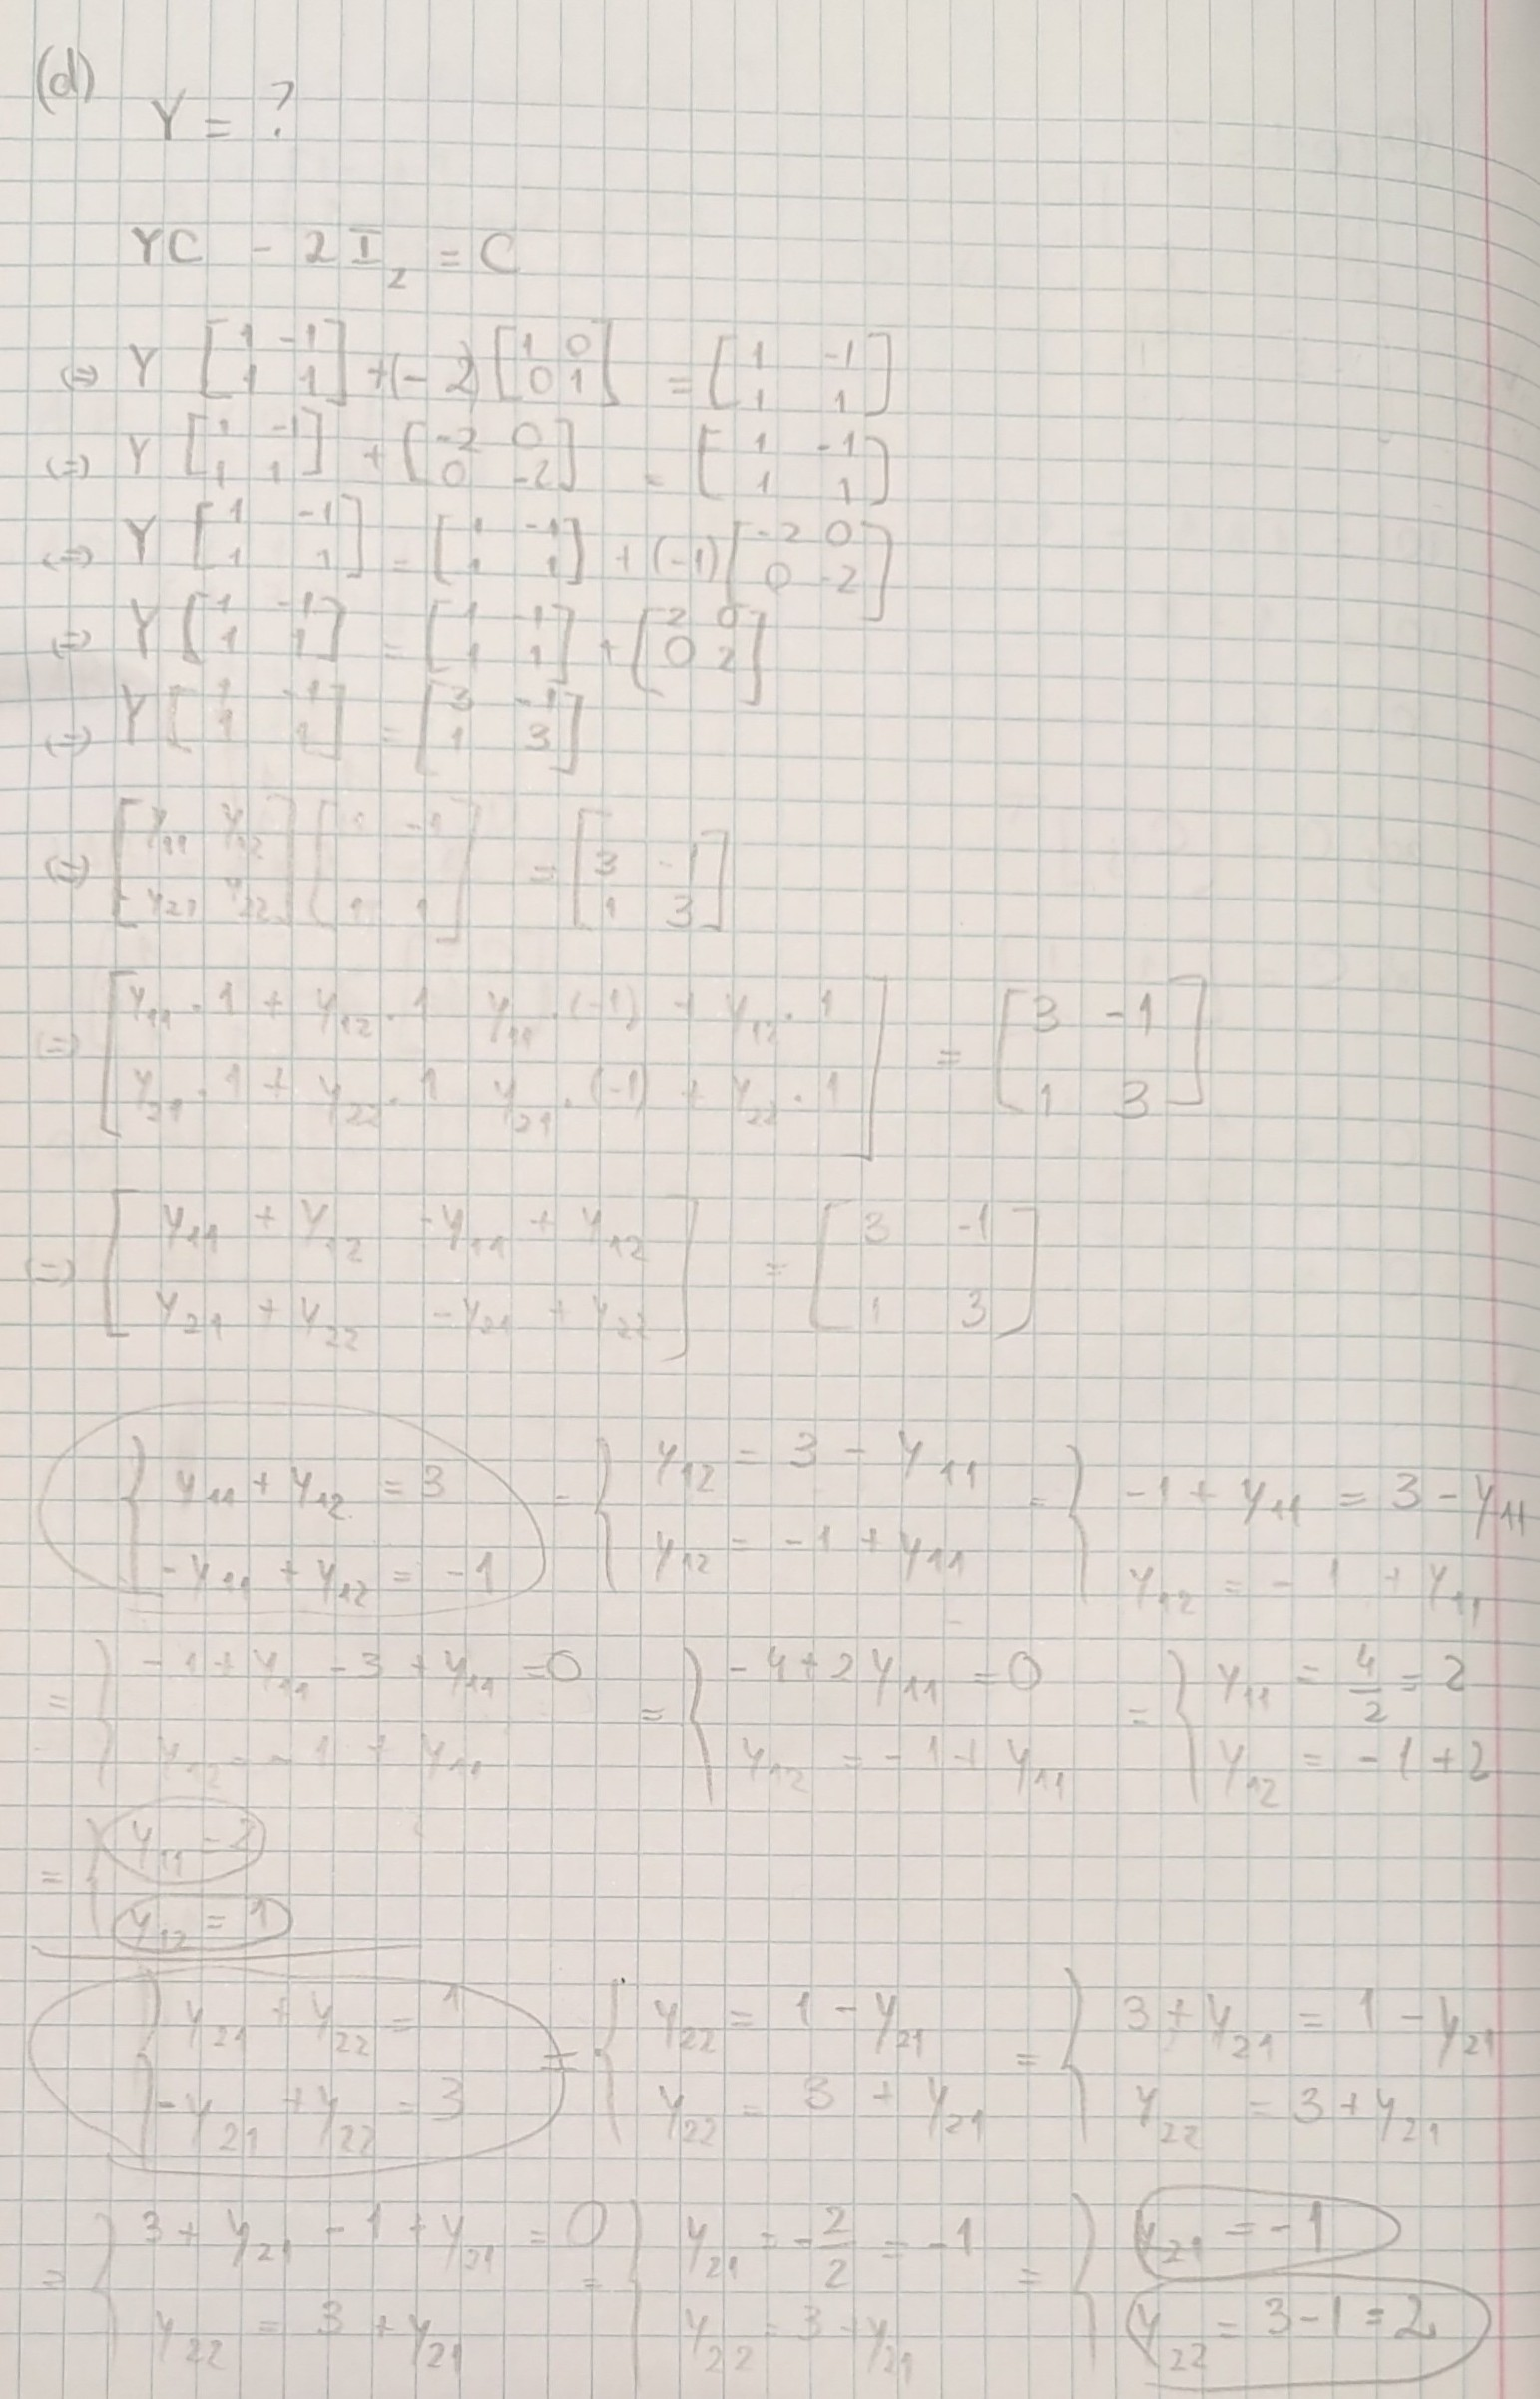 (d)
Y = ?
YC - 2 I₂ = C
(=) Y [1 -1; 1 1] + (-2) [1 0; 0 1] = [1 -1; 1 1]
(=) Y [1 -1; 1 1] + [-2 0; 0 -2] = [1 -1; 1 1]
(=) Y [1 -1; 1 1] = [1 -1; 1 1] + (-1) [-2 0; 0 -2]
(=) Y [1 -1; 1 1] = [1 -1; 1 1] + [2 0; 0 2]
(=) Y [1 -1; 1 1] = [3 -1; 1 3]
(=) [y₁₁ y₁₂; y₂₁ y₂₂] [1 -1; 1 1] = [3 -1; 1 3]
(=) [y₁₁·1 + y₁₂·1 y₁₁·(-1) + y₁₂·1; y₂₁·1 + y₂₂·1 y₂₁·(-1) + y₂₂·1] = [3 -1; 1 3]
(=) [y₁₁ + y₁₂ -y₁₁ + y₁₂; y₂₁ + y₂₂ -y₂₁ + y₂₂] = [3 -1; 1 3]
{ y₁₁ + y₁₂ = 3; -y₁₁ + y₁₂ = -1 = { y₁₂ = 3 - y₁₁; y₁₂ = -1 + y₁₁ = { -1 + y₁₁ = 3 - y₁₁; y₁₂ = -1 + y₁₁
= { -1 + y₁₁ - 3 + y₁₁ = 0; y₁₂ = -1 + y₁₁ = { -4 + 2y₁₁ = 0; y₁₂ = -1 + y₁₁ = { y₁₁ = 4/2 = 2; y₁₂ = -1 + 2
= { y₁₁ = 2; y₁₂ = 1
{ y₂₁ + y₂₂ = 1; -y₂₁ + y₂₂ = 3 = { y₂₂ = 1 - y₂₁; y₂₂ = 3 + y₂₁ = { 3 + y₂₁ = 1 - y₂₁; y₂₂ = 3 + y₂₁
= { 3 + y₂₁ - 1 + y₂₁ = 0; y₂₂ = 3 + y₂₁ = { y₂₁ = -2/2 = -1; y₂₂ = 3 + y₂₁ = { y₂₁ = -1; y₂₂ = 3 - 1 = 2